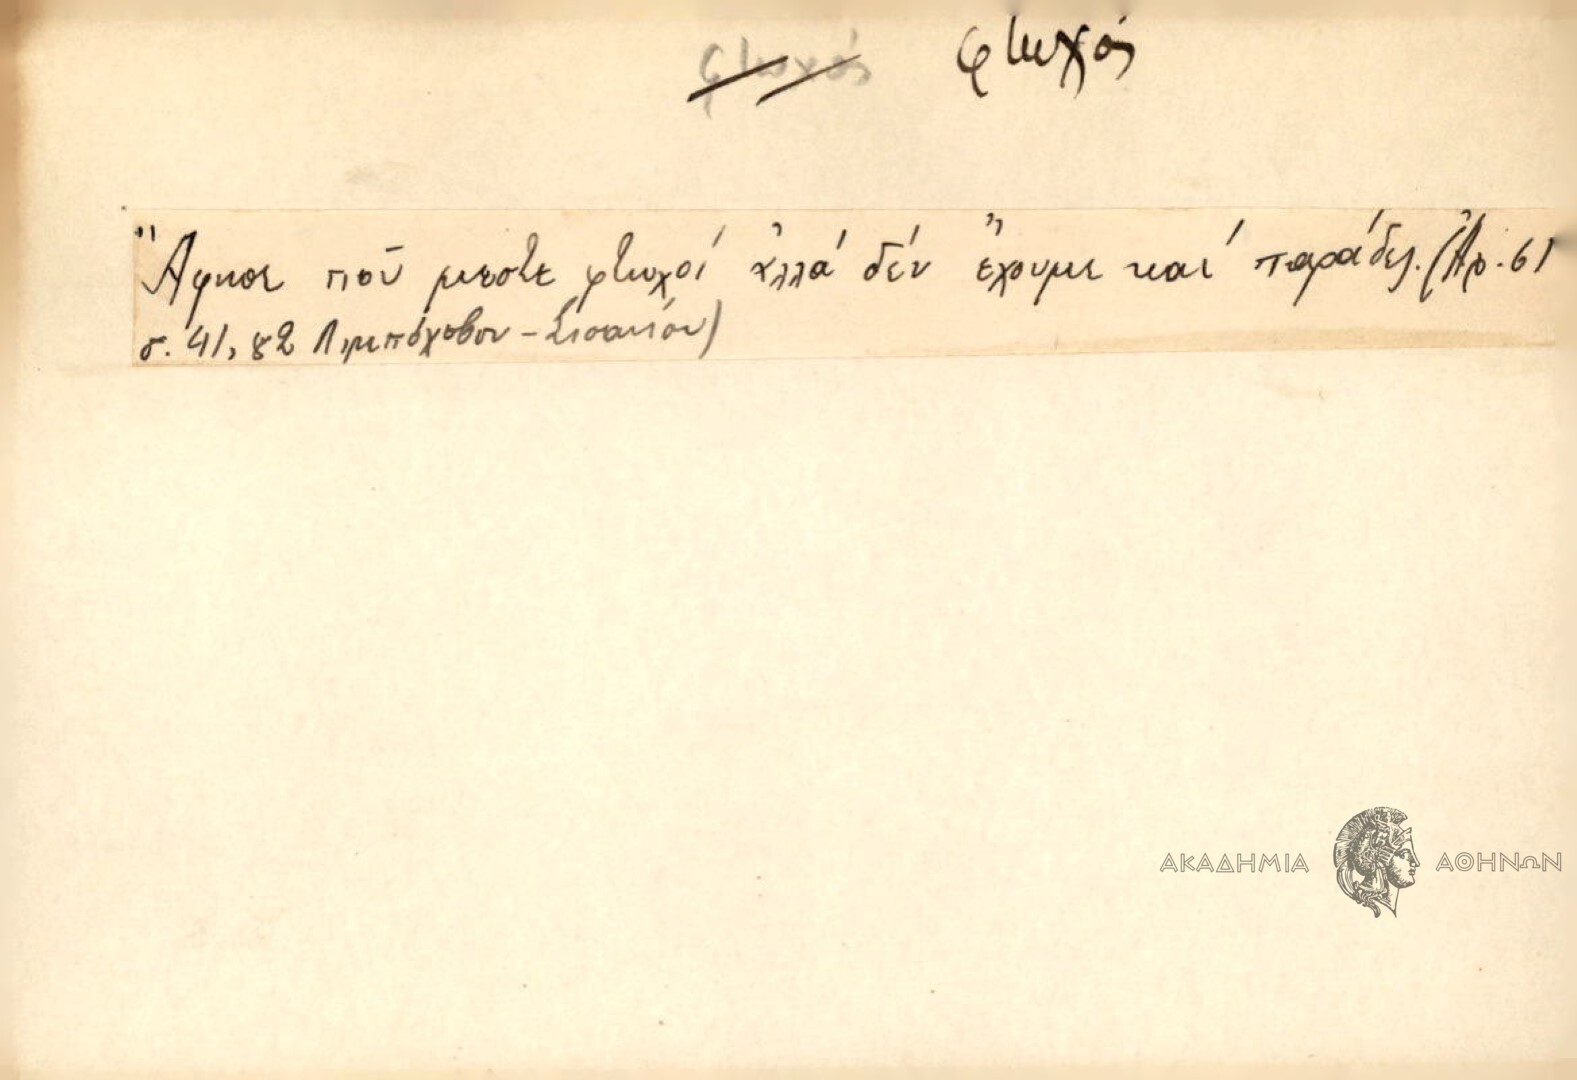 φτωχός φτωχός
Ἄφησε ποῦ μεστε φτωχοί ἀλλά δέν ἔχουμε καί παράδες. (Ἀρ. 61
σ. 41, 82 Λιμπόχοβον - Σισανίου)
ΑΚΑΔΗΜΙΑ ΑΘΗΝΩΝ